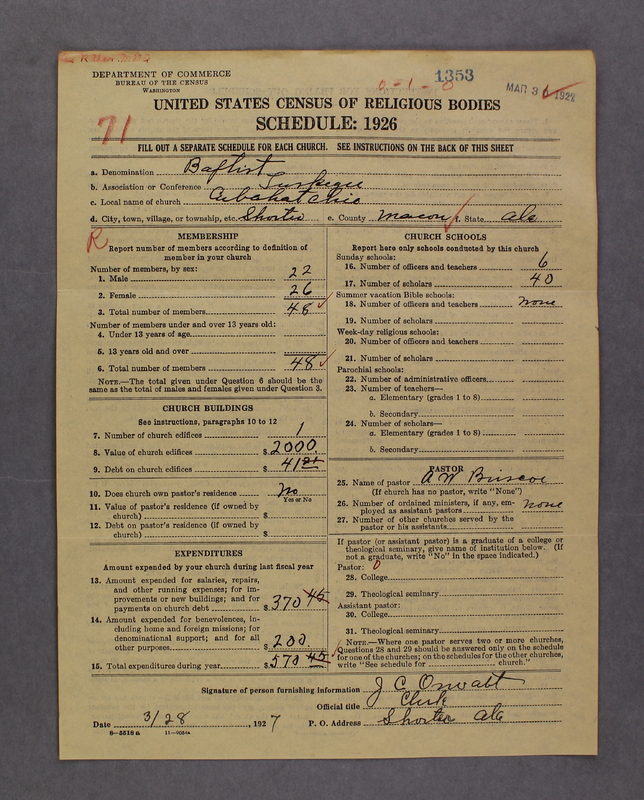 DEPARTMENT OF COMMERCE
BUREAU OF THE CENSUS
WASHINGTON
0-1-0
1353
MAR 30 1927
UNITED STATES CENSUS OF RELIGIOUS BODIES
71
SCHEDULE: 1926
FILL OUT A SEPARATE SCHEDULE FOR EACH CHURCH. SEE INSTRUCTIONS ON THE BACK OF THIS SHEET
a. Denomination Baptist
b. Association or Conference Tuskegee
c. Local name of church Cubahatchie
d. City, town, village, or township, etc. Shorter e. County Macon f. State Ala
R
MEMBERSHIP
Report number of members according to definition of member in your church
Number of members, by sex:
1. Male 22
2. Female 26
3. Total number of members 48
Number of members under and over 13 years old:
4. Under 13 years of age
5. 13 years old and over
6. Total number of members 48
NOTE.—The total given under Question 6 should be the
same as the total of males and females given under Question 3.
CHURCH BUILDINGS
See instructions, paragraphs 10 to 12
7. Number of church edifices 1
8. Value of church edifices $ 2000
9. Debt on church edifices $ 41
10. Does church own pastor's residence No
Yes or No
11. Value of pastor's residence (if owned by
church) $
12. Debt on pastor's residence (if owned by
church) $
EXPENDITURES
Amount expended by your church during last fiscal year
13. Amount expended for salaries, repairs,
and other running expenses; for im-
provements or new buildings; and for
payments on church debt $ 370 45
14. Amount expended for benevolences, in-
cluding home and foreign missions; for
denominational support; and for all
other purposes $ 200
15. Total expenditures during year $ 570 45
CHURCH SCHOOLS
Report here only schools conducted by this church
Sunday schools:
16. Number of officers and teachers 6
17. Number of scholars 40
Summer vacation Bible schools:
18. Number of officers and teachers none
19. Number of scholars
Week-day religious schools:
20. Number of officers and teachers
21. Number of scholars
Parochial schools:
22. Number of administrative officers
23. Number of teachers—
a. Elementary (grades 1 to 8)
b. Secondary
24. Number of scholars—
a. Elementary (grades 1 to 8)
b. Secondary
PASTOR
25. Name of pastor A W Briscoe
(If church has no pastor, write "None")
26. Number of ordained ministers, if any, em-
ployed as assistant pastors none
27. Number of other churches served by the
pastor or his assistants
If pastor (or assistant pastor) is a graduate of a college or
theological seminary, give name of institution below. (If
not a graduate, write "No" in the space indicated.)
Pastor: 0
28. College
29. Theological seminary
Assistant pastor:
30. College
31. Theological seminary
NOTE.—Where one pastor serves two or more churches,
Questions 28 and 29 should be answered only on the schedule
for one of the churches; on the schedules for the other churches,
write "See schedule for church."
Signature of person furnishing information J C Onvatt
Official title Clerk
Date 3/28, 1927 P. O. Address Shorter Ala
8-5518a 11-9034a